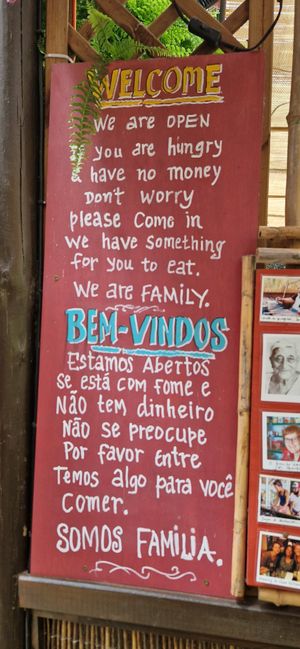 WELCOME
We are OPEN
you are hungry
& have no money
Don't worry
please Come in
We have something
for you to eat.
We are FAMILY.
BEM-VINDOS
Estamos Abertos
Se está com fome e
Não tem dinheiro
Não se preocupe
Por favor entre
Temos algo para você
Comer.
SOMOS FAMÍLIA.